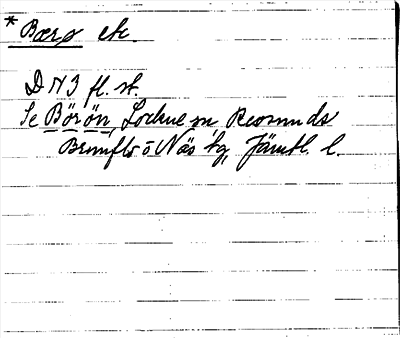 * Bærø etc.
D N 3 fl. st.
Se Börön, Lockne sn Revsunds
Brunflo o Näs tg, Jämtl. l.